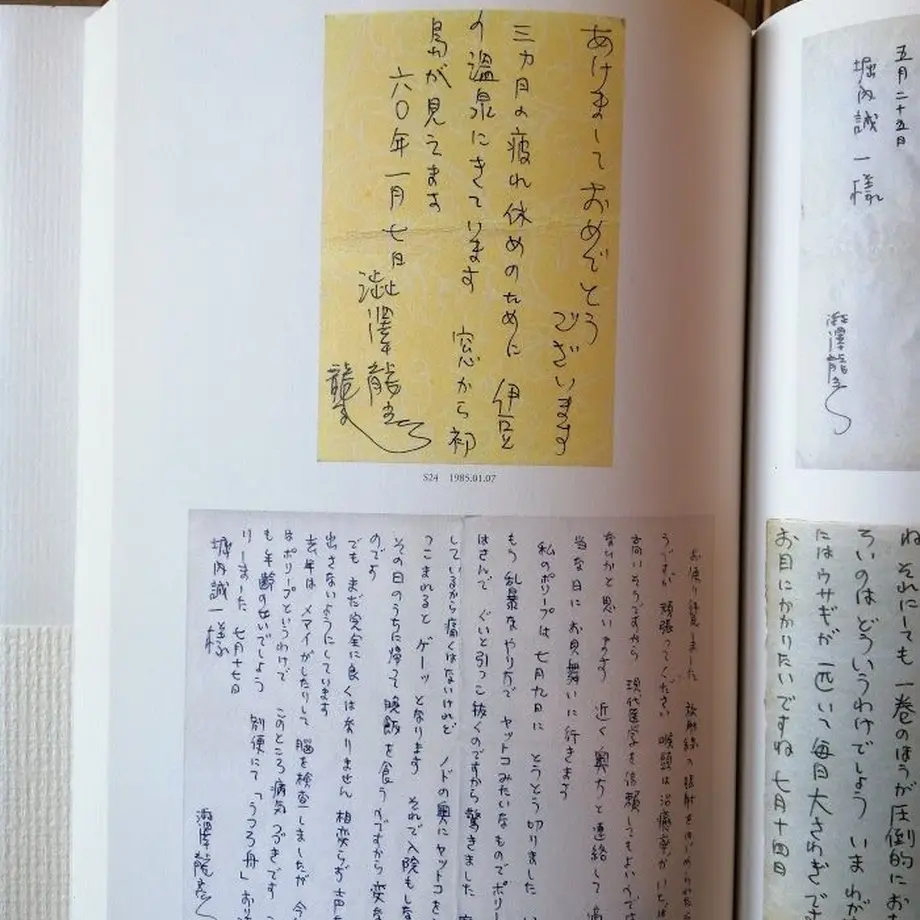 あけましておめでとう
ございます
三カ月の疲れ休めのために 伊豆
の温泉にきています 窓から初
島が見えます
六〇年一月七日
澁澤龍彦
龍子
S24 1985.01.07
お便り拝見しました 放射線の照射をはじめられた
うですが 頑張ってください 喉頭は治癒率が
高いそうですから 現代医学を信頼してもよいのでは
ないかと思います 近く奥方と連絡して 適
当な日にお見舞いに行きます
私のポリープは 七月九日に とうとう切りました
もう乱暴なやり方で ヤットコみたいなものでポリー
はさんで ぐいと引っこ抜くのですから驚きました
しているから痛くはないけれど ノドの奥にヤットコを
つっこまれるとゲーッとなります それで入院もしな
その日のうちに帰って晩飯を食うのですから変な
のです
でもまだ完全に良くは参りません 相変らず声
出さないようにしています
去年は メマイがしたりして 脳を検査しましたが 今
はポリープというわけで このところ病気づきです
も年齢のせいでしょう 別便にて「うつろ舟」お
りました 七月十七日
堀内誠一様
澁澤龍彦
五月二十五日
堀内誠一様
澁澤龍彦
ね それにしても 一巻のほうが圧倒的に
そいのはどういうわけでしょう いまわが
にはウサギが一匹いて毎日大さわぎで
お目にかかりたいですね 七月十四日